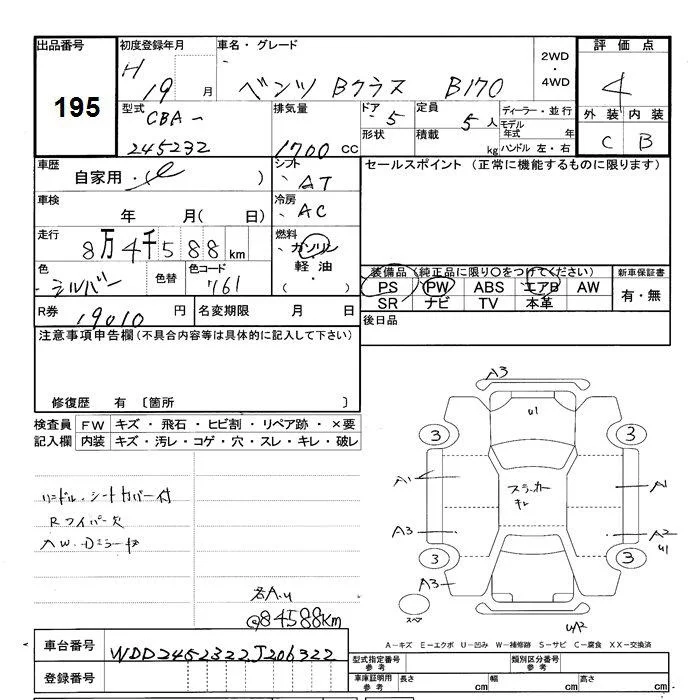 出品番号
195
初度登録年月
H 19 月
車名・グレード
ベンツ Bクラス B170
2WD
・
4WD
評価点
4
外装 内装
C B
型式
CBA-
245232
排気量
1700 cc
ドア
5
形状
定員
5 人
積載 kg
ディーラー・並行
モデル年式 年
ハンドル 左・右
車歴
自家用・( )
シフト
AT
セールスポイント (正常に機能するものに限ります)
車検
年 月( 日)
冷房
AC
走行
8万4千588km
燃料
ガソリン
軽油
( )
色
シルバー
色替
色コード
761
装備品 (純正品に限り○をつけてください)
PS PW ABS エアB AW
SR ナビ TV 本革
新車保証書
有・無
R券
19010 円
名変期限 月 日
後日品
注意事項申告欄 (不具合内容等は具体的に記入して下さい)
修復歴 有 〔箇所 〕
検査員 FW キズ・飛石・ヒビ割・リペア跡・×要
記入欄 内装 キズ・汚レ・コゲ・穴・スレ・キレ・破レ
ハンドル・シートカバー付
Rワイパー欠
AW・Dミラーキズ
@84588km
A3
U1
3 3
A1 A
キレ
A3 A2
U1
3 3
A3
スペア
UA2
A-キズ E-エクボ U-凹み W-補修跡 S-サビ C-腐食 XX-交換済
車台番号
WDD2452322J206322
登録番号
型式指定番号
参考
類別区分番号
参考
車庫証明用
参考
長さ cm
幅 cm
高さ cm